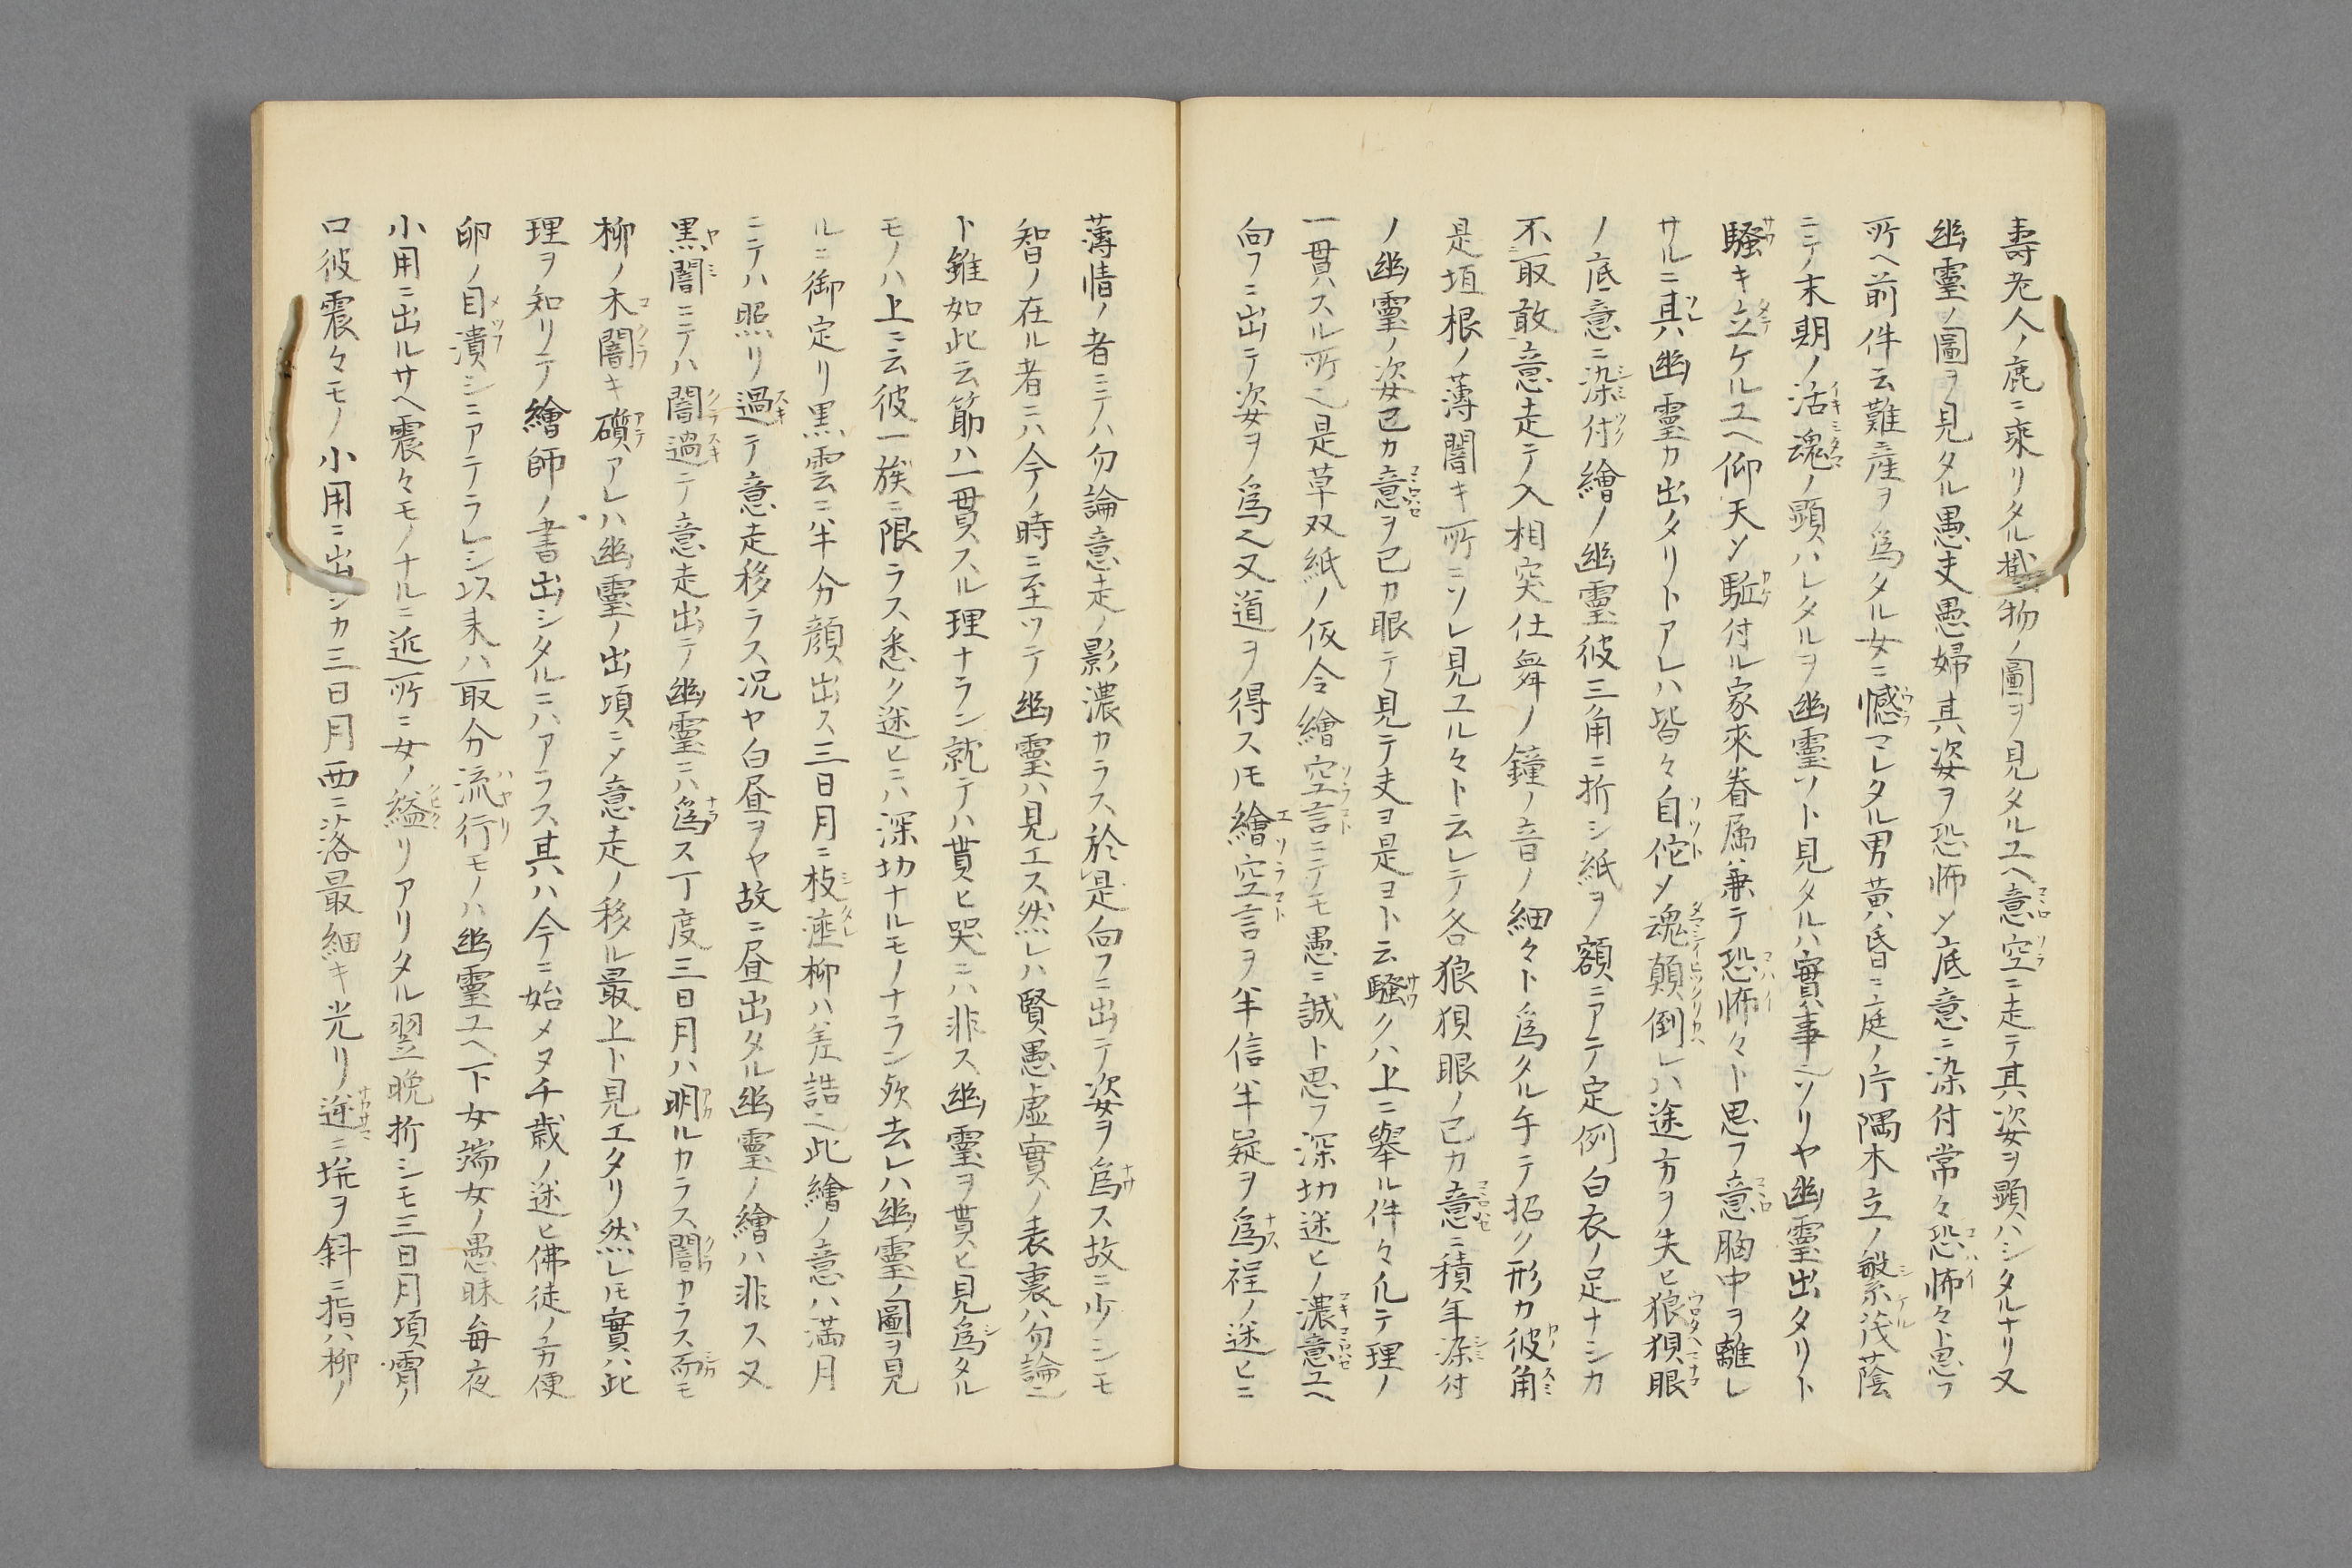 壽老人ノ鹿ニ乘リタル掛物ノ圖ヲ見タルユヘ意空ニ走テ其姿ヲ顕ハシタルナリ又
幽霊ノ圖ヲ見タル愚夫愚婦其姿ヲ恐怖〆底意ニ染付常々恐怖々ト思フ
所ヘ前件云難産ヲ爲タル女ニ憾マレタル男黄昏ニ庭ノ片隅木立ノ繁茂蔭
ニテノ末期ノ活魂ノ顕ハレタルヲ幽霊ソト見タルハ實事ニソリヤ幽霊出タリト
騒キ立ケルユヘ仰天ソ駈付ル家來眷属兼テ恐怖々ト思フ意胸中ヲ離レ
サルニ其ハ幽霊カ出タリトアレハ皆々自佗〆魂顛倒レハ途方ヲ失ヒ狼狽眼
ノ底意ニ染付繪ノ幽霊彼三角ニ折シ紙ヲ額ニアテ定例白衣ノ足ナシカ
不取敢意走テ入相突仕舞ノ鐘ノ音ノ細々ト爲タル午テ招ク形カ彼角
是垣根ノ薄闇キ所ニソレ見ユル々ト云レテ各狼狽眼ノ己カ意ニ積年染付
ノ幽霊ノ姿己カ意ヲ己カ眼テ見テ夫ヨ是ヨト云騒クハ上ニ舉ル件々凡テ理ノ
一貫スル所之是草双紙ノ仮令繪空言ニテモ愚ニ誠ト思フ深切迷ヒノ濃意ユヘ
向フニ出テ姿ヲ爲之又道ヲ得スモ繪空言ヲ半信半疑ヲ爲程ノ迷ヒニ
薄情ノ者ニテハ勿論意走ノ影濃カラス於是向フニ出テ姿ヲ爲ス故ニ少シモ
智ノ在ル者ニハ今ノ時ニ至ツテ幽霊ハ見エス然レハ賢愚虚實ノ表裏ハ勿論之
ト雖如此云節ハ一貫スル理ナラン就テハ貰ヒ哭ニハ非ス幽霊ヲ貰ヒ見爲タル
モノハ上ニ云彼一族ニ限ラス悉ク迷ヒニハ深切ナルモノナラン歟去レハ幽霊ノ圖ヲ見
ルニ御定リ黒雲ニ半分顔出ス三日月ニ枝埀柳ハ差詰之此繪ノ意ハ満月
ニテハ照リ過テ意走移ラス况ヤ白昼ヲヤ故ニ昼出タル幽霊ノ繪ハ非ス又
黒闇ニテハ闇過テ意走出テ幽霊ニハ爲ス丁度三日月ハ明ルカラス闇カラス而モ
柳ノ木闇キ礩アレハ幽霊ノ出頃ニ〆意走ノ移ル最上ト見エタリ然レモ實ハ此
理ヲ知リテ繪師ノ書出シタルニハアラス其ハ今ニ始メヌ千歳ノ迷ヒ佛徒ノ方便
卵ノ目潰シニアテラレシ以来ハ取分流行モノハ幽霊ユヘ下女端女ノ愚昧毎夜
小用ニ出ルサヘ震々モノナルニ近所ニ女ノ縊リアリタル翌晩折シモ三日月頃宵ノ
口彼震々モノ小用ニ出シカ三日月西ニ落最細キ光リ逆ニ挑ヲ斜ニ指ハ柳ノ